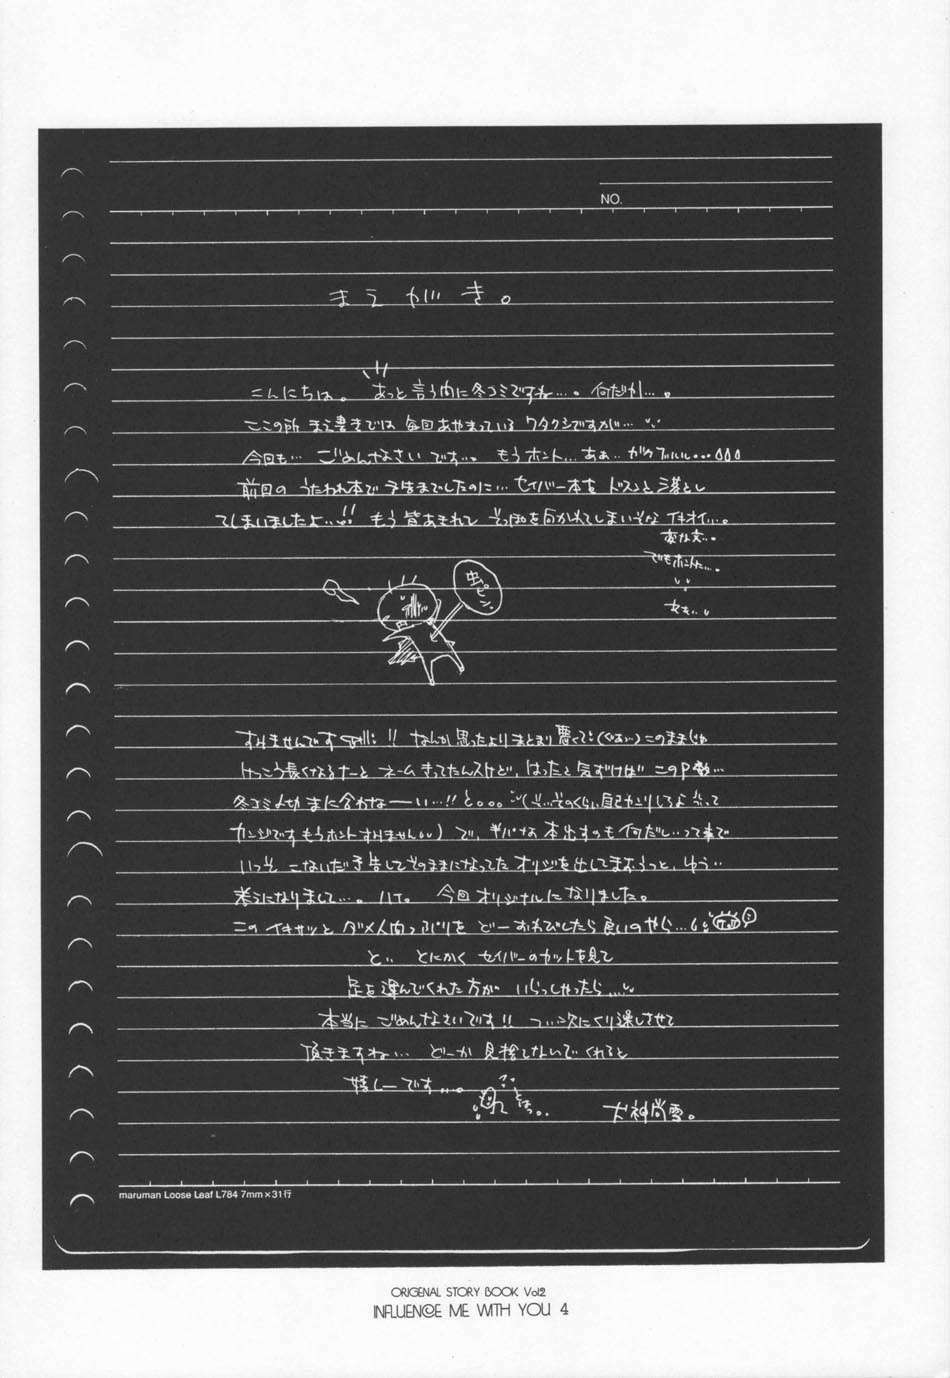 NO.
まえがき。
こんにちは。あっと言う内に冬コミですね…。何だか…。
ここの所 まえ書きでは 毎回あやまっている ワタクシですが…
今回も… ごめんなさい です…。もう ホント… あぁ… ガクブルル…
前回の うたわれ本で 予告までしたのに… セイバー本を ドスンと落とし
てしまいましたよ…!! もう 皆あきれて そっぽを向かれてしまいそな イキオイ…。
変な文…。
でもホント…。
虫ピン。
すみませんです !! なんか 思ったより まとまり悪くて (ぐあい) このままじゃ
けっこう長くなるナーと ネーム きってたんスけど、はったと気ずけば このP数…
冬コミ〆切 まに合わなーーい…!! と。。。 (そのくらい自己カンリしろよ って
カンジです もうホント すみません) で、半パな 本出すのも 何だしぃって事で
いっそ こないだ予告してそのままになってた オリジを出してまおうっと、ゆう
考えになりまして…。ハイ。 今回 オリジナルに なりました。
この イキサツと ダメ人間っぷりを どーおわびしたら 良いのやら…
と とにかく セイバーのカットを見て
足を運んでくれた方が いらっしゃったら…
本当に ごめんなさいです!! つい次にくり越しさせて
頂きますね… どーか 見捨てないでくれると
嬉しーです…。
犬神尚雪。
maruman Loose Leaf L784 7mm×31行
ORIGENAL STORY BOOK Vol2
INFLUENCE ME WITH YOU 4